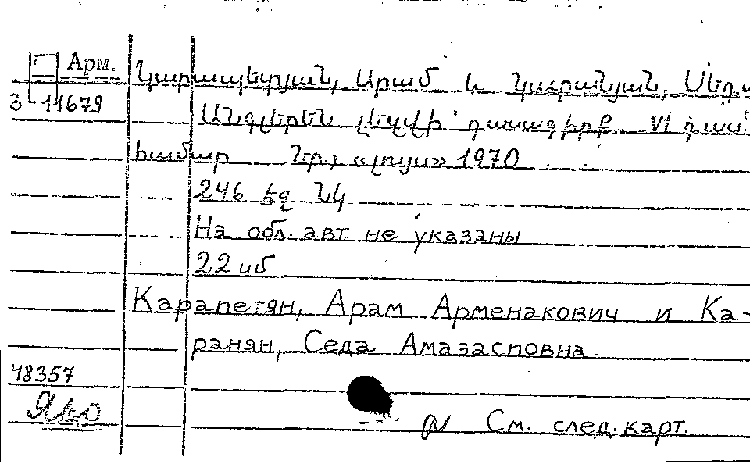 Арм. Կարապետյան, Արամ և Կարանյան, Սեդա
3-11679 Անգլերեն լեզվի դասագիրք VI դաս.
համար Եր., «Լույս» 1970
246 էջ նկ
На обл. авт не указаны
22 սմ
Карапетян, Арам Арменакович и Ка-
ранян, Седа Амазасповна
18357
См. след. карт.